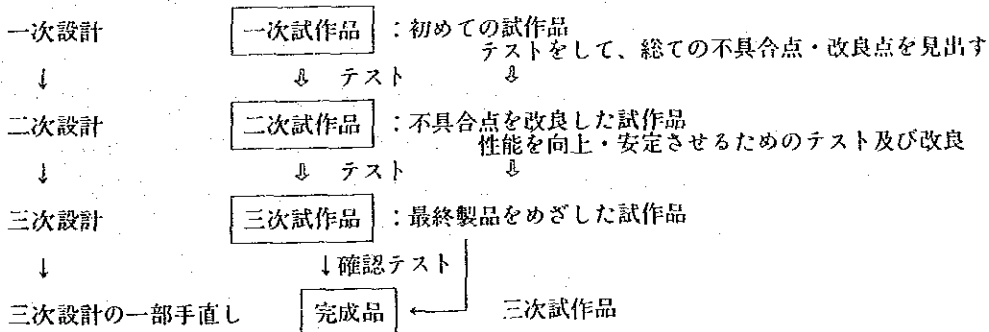 一次設計 一次試作品 :初めての試作品
テストをして、総ての不具合点・改良点を見出す
↓ ⇩ テスト ⇩
二次設計 二次試作品 :不具合点を改良した試作品
性能を向上・安定させるためのテスト及び改良
↓ ⇩ テスト ⇩
三次設計 三次試作品 :最終製品をめざした試作品
↓ ↓確認テスト
三次設計の一部手直し 完成品 ← 三次試作品